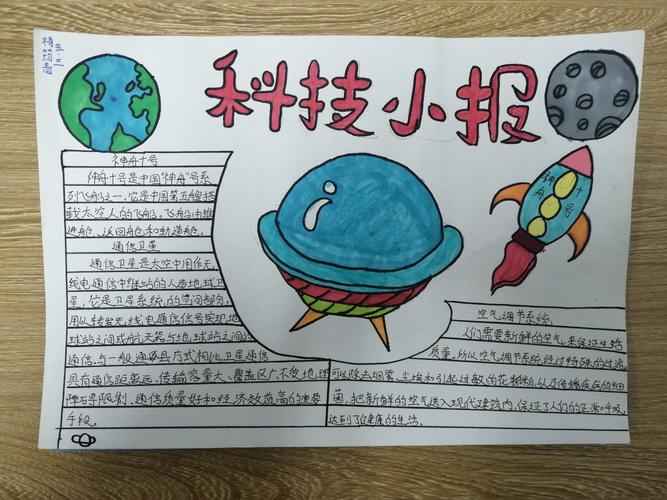 科技小报
神舟十号
神舟十号是中国“神舟”号系
列飞船之一,它是中国第五艘搭
载太空人的飞船。飞船由推
进舱、返回舱和轨道舱。
通信卫星
通信卫星是太空中用作无
线电通信中继站的人造地球卫
星,它是卫星系统的空间部分,
用以转发无线电通信信号实现地
球站之间或航天器与地球站之间的
通信,与一般通信方式相比卫星通信
具有通信距离远、传输容量大、覆盖区广、不受地理
障碍限制、通信质量好和经济效益高的重要
手段。
神舟十号
空气调节系统
人们需要新鲜的空气来保证生活
质量,所以空气调节系统经过特殊的过滤
可以除去烟雾、尘埃和引起过敏的花粉粒,以及传播疾病的细
菌,把新鲜的空气送入现代建筑内,保证了人们的正常呼吸,
达到了健康的生活。